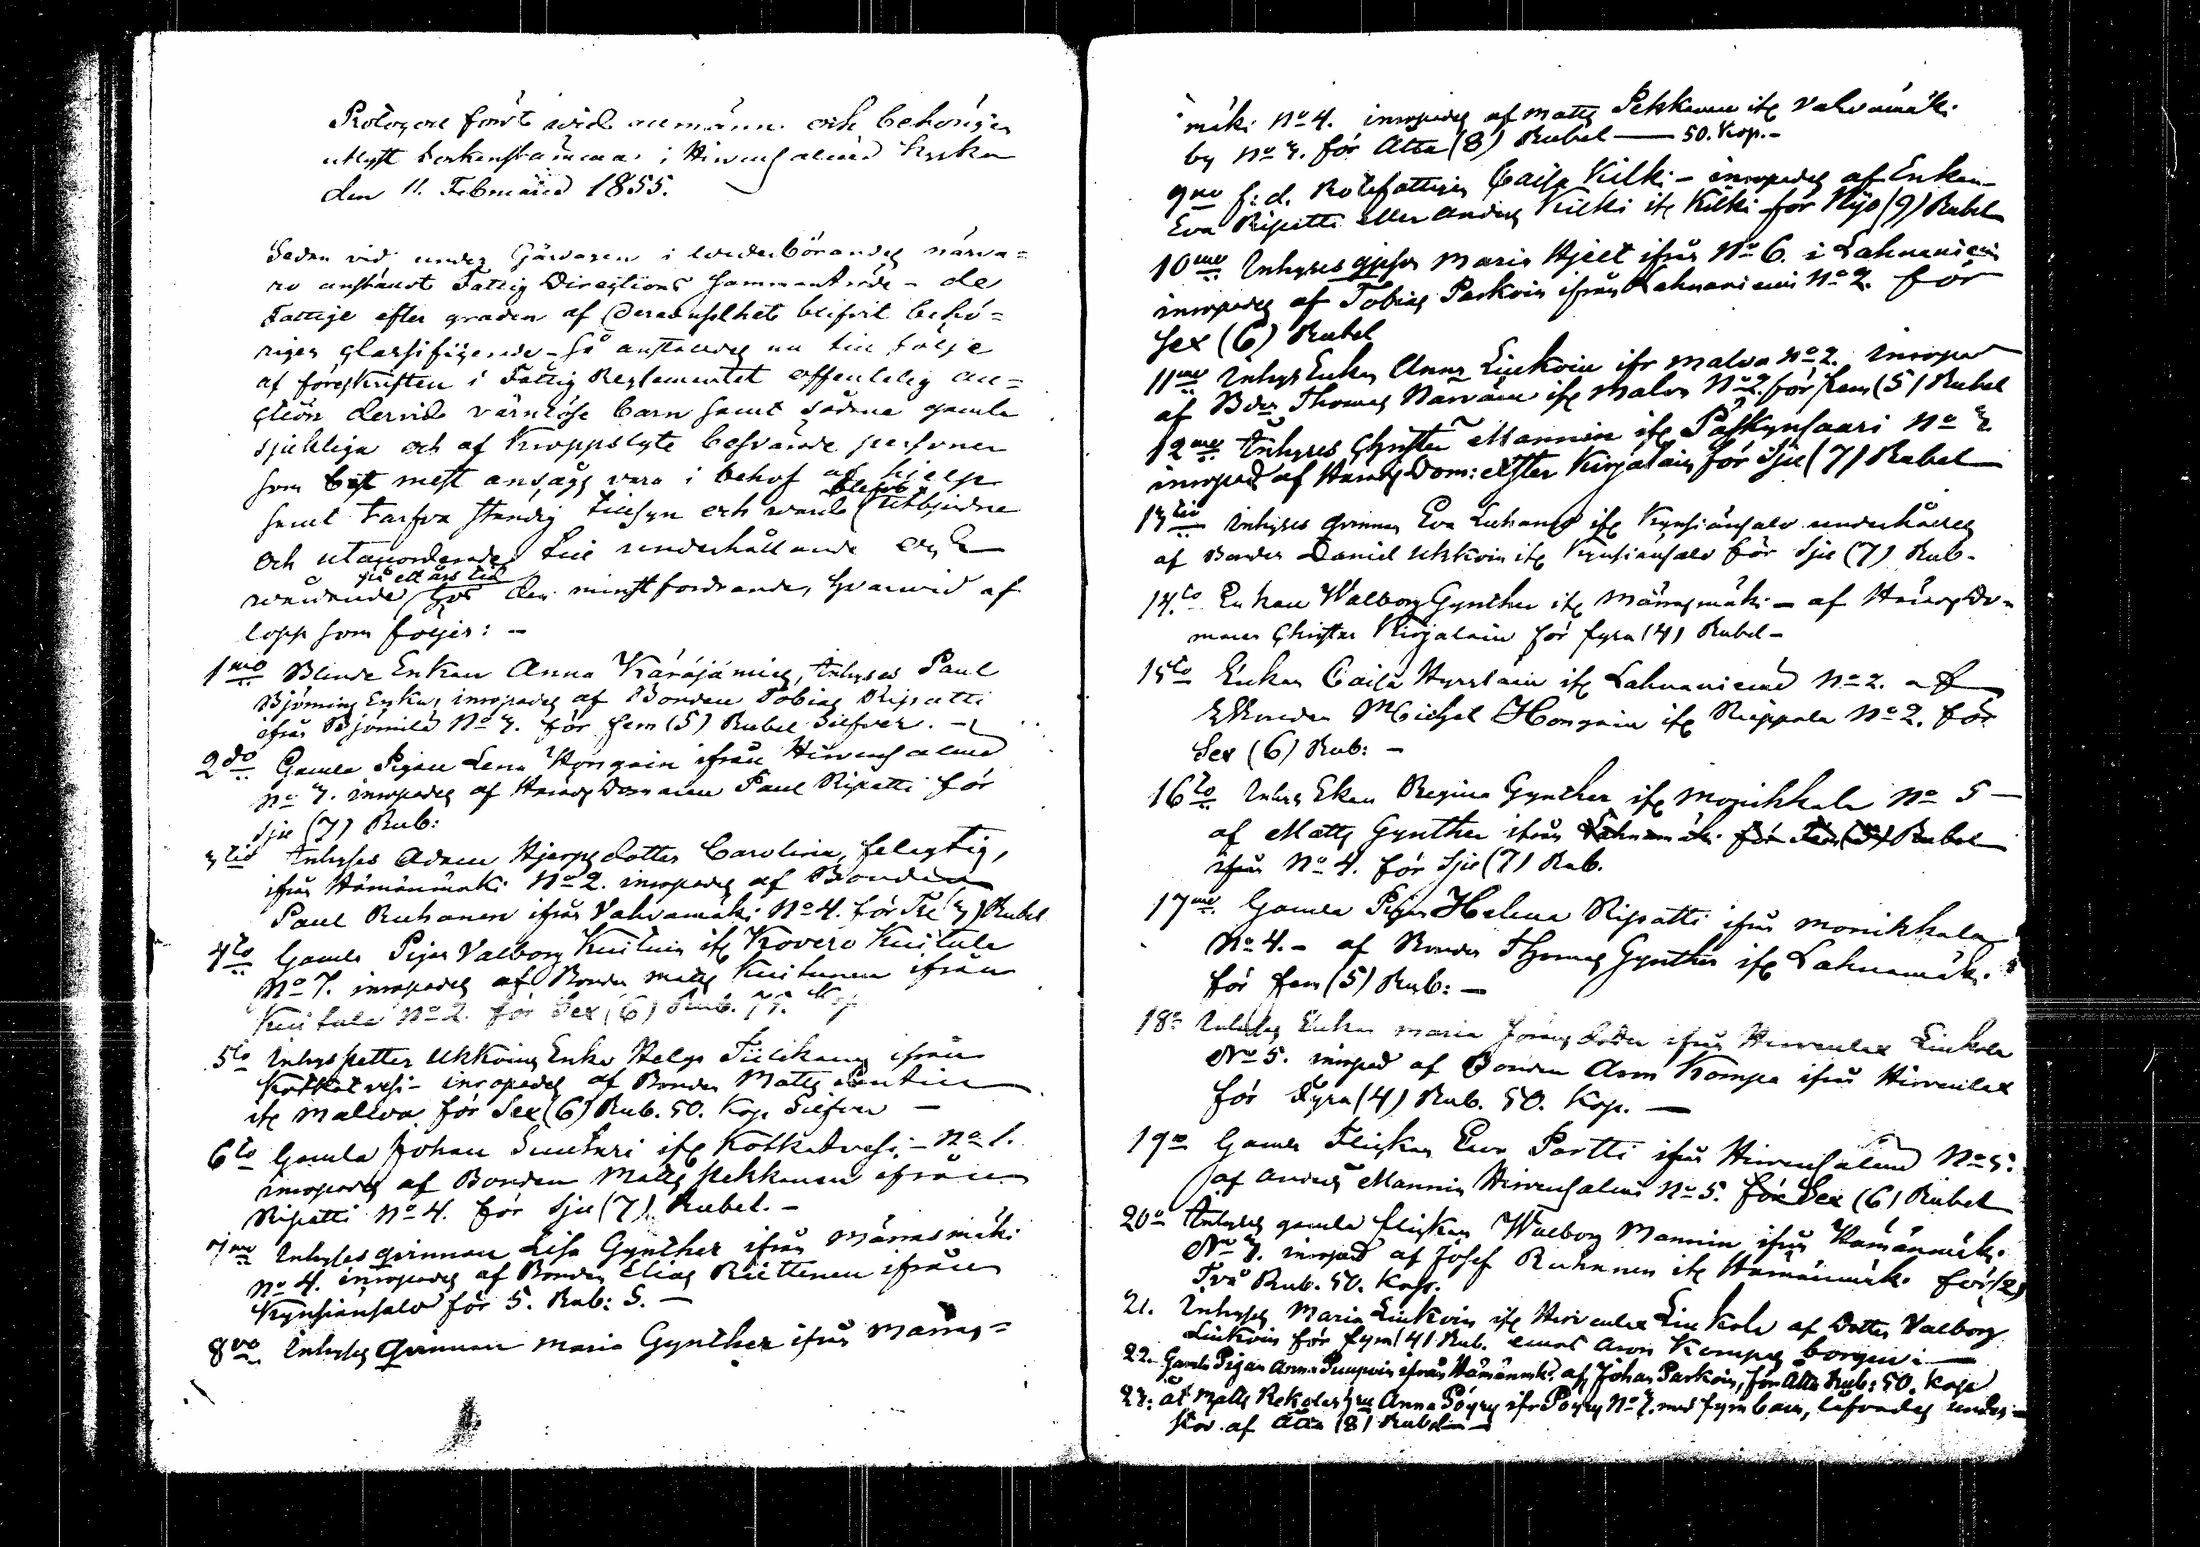 Protocoll fördt wid allmänn och behörigen
utlyst Sockenstämma i Hirvensalmed Kyrka
den 11. Februarii 1855.
Sedan vid under Gårdagen i wederbörandes närva=
ro anstäldt Fattig Directions sammanträde - de
Fattige efter graden af deras uselhet blifvit behö=
rigen classificerade - så anstäldes nu till följe
af föreskriften i Fattig Reglementet offentelig au=
ction dervid värnlöse barn samt sådana gamla
sjukliga och af Kroppslyte besvärade personer
som mest ansågs vara i behof af hjelp
samt tarfva ständig tillsyn och wård blefvo utbjudne
och utackorderades till underhållande och
på ett års tid den minstfordrande, hvarvid af
lopp som följer: -
1mo Blinde Enkan Anna Karajamin, Inhyses Paul
Björnins Enka, inropades af Bonden Tobias Ripatti
ifrån Björnilä No 3. för fem (5) Rubel Silfver. -
2do Gamla Pigan Lena Hongain ifrån Hirvensalmed
No 3. inropades af Häradsdomaren Paul Ripatti för
Sju (7) Rub:
3tio Inhyses Adam Hjerpes dotter Carolina, felagtig,
ifrån Hämänmäki No 2. inropades af Bonden
Paul Ruhanen ifrån Vahvamäki No 4. för Tre (3) Rubel
4to Gamla Pigan Valborg Kuituin ifr Kovero Kuitula
No 7. inropades af Bonden Matts Kuitunen ifrån
Kuitula No 2. för Sex (6) Rub. 75. Kop
5to Inhyses Petter Ukkoins Enka Helga Tiilikain ifrån
Kotkatvesi - inropades af Bonden Matts
ifr Malvva för Sex (6) Rub. 50. Kop Silfver -
6to Gamla Johan Suuturi ifr Kotkatvesi - No 1.
inropades af Bonden Matts Pekkanen ifrån
Ripatti No 4. för Sju (7) Rubel. -
7mo Inhyses qvinnan Lisa Gynther ifrån Männsmäki
No 4. inropades af Bonden Elias Riittinen ifrån
Kynsiänsalo för 5. Rub: S. -
8vo Inhyses Qvinnan Maria Gynther ifrån Männs=
mäki No 4. inropades af Matts Pekkanen ifr Vahvamäki
by No 3. för Åtta (8) Rubel - 50. Kop. -
9no f:d. Rotefattigen Caisa Kilki - inropades af Enkan
Eva Ripatti eller Anders Kilki ifr Kilki för Nijo (9) Rubel
10mo Inhyses Maria Hjelt ifrån No 6. i Lahnaniemi
inropades af Tobias Parkoin ifrån Lahnaniemi No 2. för
Sex (6) Rubel
11mo Inhyses Enkan Anna Liukoin ifr Malva No 2. Inropad
af Bden Thomas Narvain ifr Malva No 2. för fem (5) Rubel
12mo Inhyses Christer Mannin ifr Päskynsaari No 3
inropad af Härads Dom: Christer Kirjalain för Sju (7) Rubel
13tio Inhyses qvinnan Eva Luhan ifr Kynsiänsalo underhålles
af Bonden Daniel Ukkoin ifr Kynsiänsalo för Sju (7) Rub.
14to Enkan Walborg Gynther ifr Männsmäki - af Härads Do=
maren Christer Kirjalain för fyra (4) Rubel -
15to Enkan Caisa Hyyryläin ifr Lahnaniemi No 2. af
Bonden Michel Hongain ifr Suppala No 2. för
Sex (6) Rub: -
16to Inhys Enkan Regina Gynther ifr Monikkala No 5 -
af Matts Gynther ifrån Lahnamäki för Fem (5) Rubel
ifrån No 4. för Sju (7) Rub.
17mo Gamla Pigan Helena Ripatti ifrån Monikkala
No 4. - af Bonden Thomas Gynther ifr Lahnamäki
för fem (5) Rub: -
18o Inhyses Enkan Maria Jöransdotter ifrån Hirvenlax Liukola
No 5. inropad af Bonden Aron Kompa ifrån Hirvenlax
för Fyra (4) Rub. 50. Kop. -
19o Gamla Flickan Eva Partti ifrån Hirvensalmi No 5:
af Anders Mannin Hirvensalmi No 5. för Sex (6) Rubel
20o Inhyses gamla flickan Walborg Mannin ifrån Hämänmäki
No 3. inropad af Josef Ruhanen ifr Hämänmäki för (2)
Två Rub. 50. Kop.
21. Inhyses Maria Liukoin ifr Hirvenlax Liukola af Dotter Valborg
Liukoin för fyra (4) Rub. emot Aron Kompas borgen: -
22. Gamla Pigan Anna Pumpoin ifrån Hämänmäki af Johan Parkoin, för Åtta Rub: 50. Kop
23: åt Matts Rekolas hru Anna Pöyry ifr Pöyry No 3. med fyra barn, lefvades under
stöd af Åtta (8) Rubel -